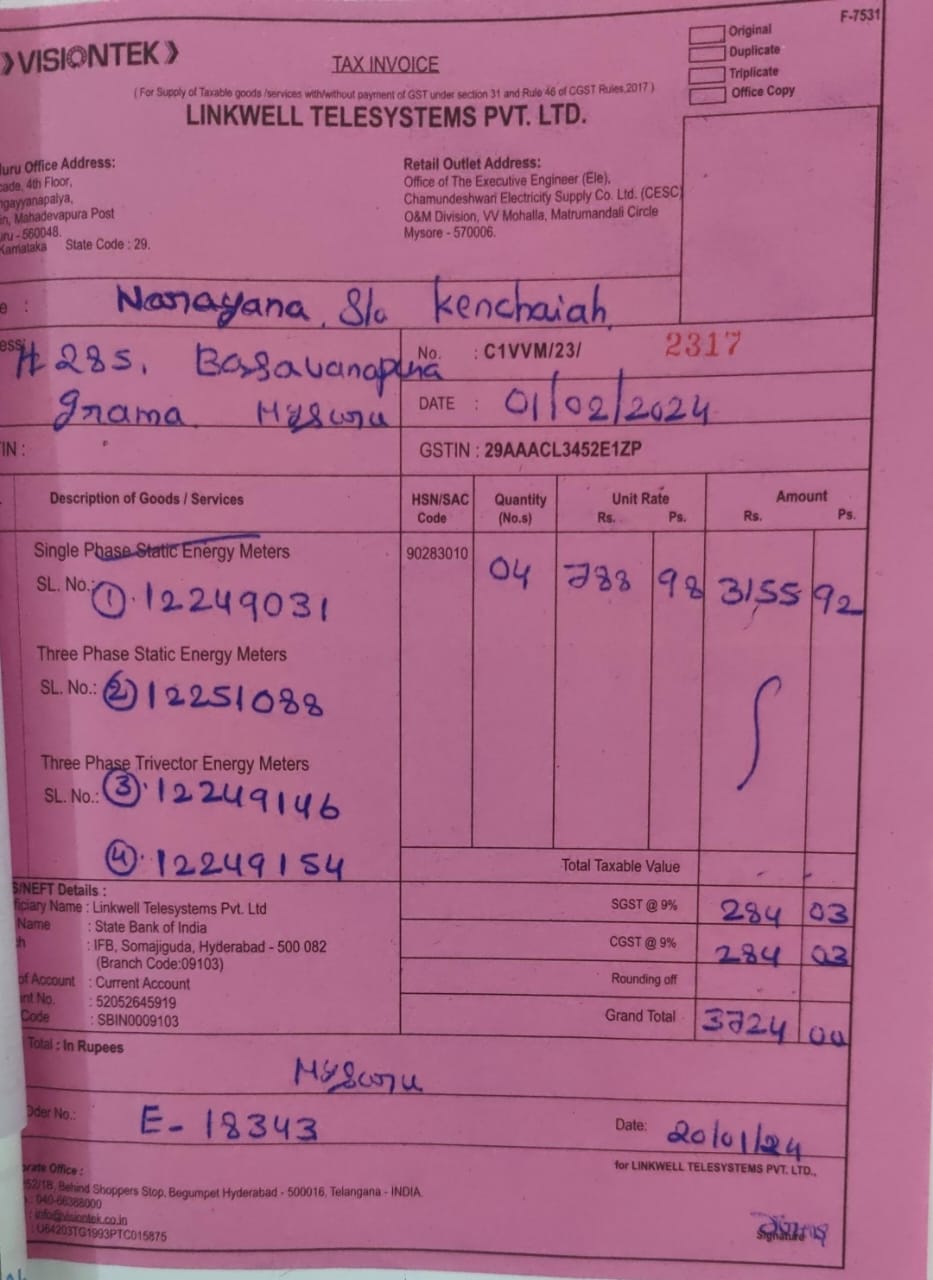 F-7531
VISIONTEK
TAX INVOICE
Original
Duplicate
Triplicate
Office Copy
( For Supply of Taxable goods /services with/without payment of GST under section 31 and Rule 46 of CGST Rules,2017 )
LINKWELL TELESYSTEMS PVT. LTD.
uru Office Address:
cade, 4th Floor,
ngayyanapalya,
in, Mahadevapura Post
uru - 560048.
Karnataka State Code : 29.
Retail Outlet Address:
Office of The Executive Engineer (Ele),
Chamundeshwari Electricity Supply Co. Ltd. (CESC)
O&M Division, VV Mohalla, Matrumandali Circle
Mysore - 570006.
e : Narayana S/o Kenchaiah
ess: # 285, Basavanapura
grama Mysuru
No. : C1VVM/23/ 2317
DATE : 01/02/2024
IN :
GSTIN : 29AAACL3452E1ZP
Description of Goods / Services HSN/SAC Code Quantity (No.s) Unit Rate Rs. Ps. Amount Rs. Ps.
Single Phase Static Energy Meters 90283010 04 788 98 3155 92
SL. No.: 1 . 12249031
Three Phase Static Energy Meters
SL. No.: 2 12251088
Three Phase Trivector Energy Meters
SL. No.: 3 . 12249146
4 . 12249154
Total Taxable Value - -
S/NEFT Details :
ficiary Name : Linkwell Telesystems Pvt. Ltd
Name : State Bank of India
h : IFB, Somajiguda, Hyderabad - 500 082
(Branch Code:09103)
of Account : Current Account
nt No. : 52052645919
Code : SBIN0009103
SGST @ 9% 284 03
CGST @ 9% 284 03
Rounding off
Grand Total 3724 00
Total : In Rupees
Mysuru
Oder No.: E- 18343 Date: 20/01/24
for LINKWELL TELESYSTEMS PVT. LTD.,
orate Office :
52/1B, Behind Shoppers Stop, Begumpet Hyderabad - 500016, Telangana - INDIA.
: 040-66388000
: info@visiontek.co.in
: U64203TG1993PTC015875
Signature